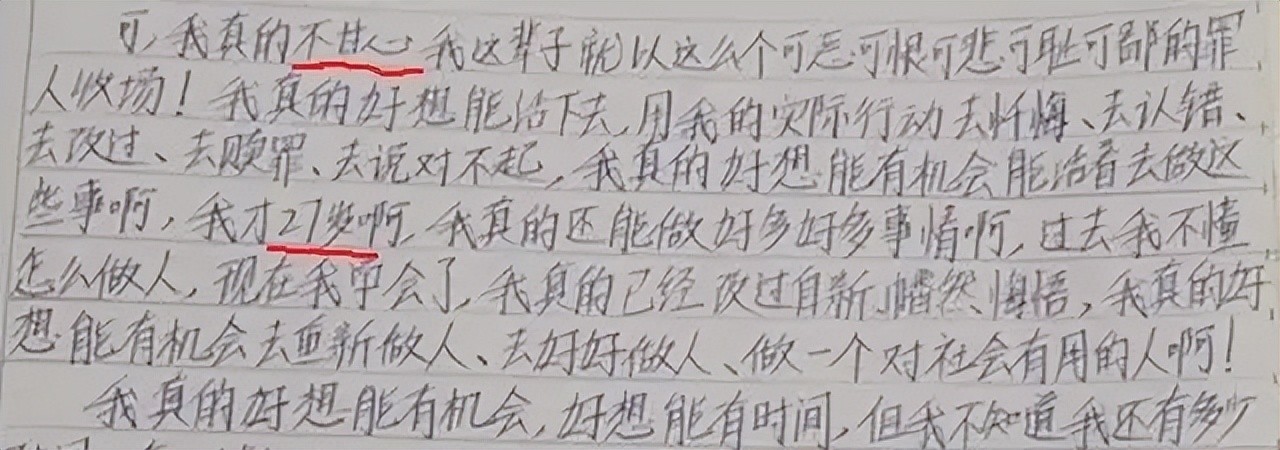 可,我真的不甘心我这辈子就以这么个可恶可恨可悲可耻可鄙的罪
人收场！我真的好想能活下去,用我的实际行动去忏悔、去认错、
去改过、去赎罪、去说对不起,我真的好想能有机会能活着去做这
些事啊,我才27岁啊,我真的还能做好多好多事情啊,过去我不懂
怎么做人,现在我学会了,我真的已经改过自新,幡然悔悟,我真的好
想能有机会去重新做人、去好好做人、做一个对社会有用的人啊！
我真的好想能有机会,好想能有时间,但我不知道我还有多少